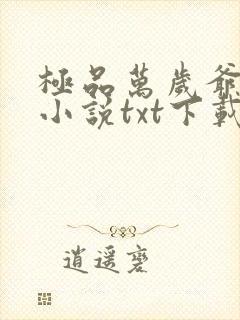 極品萬歲爺
小說txt下載
逍遥磨